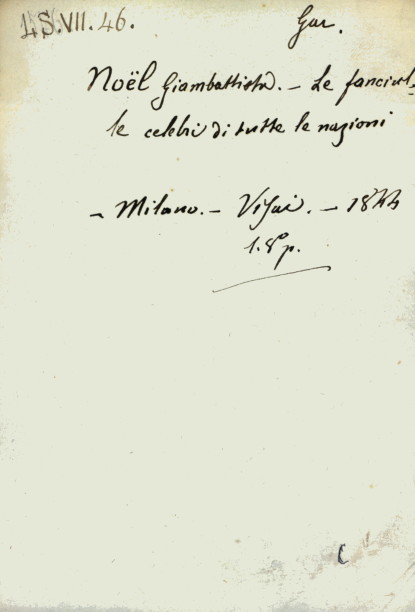 LS.VII.46.
Gar.
Noël Giambattista. – Le fanciul-
le celebri di tutte le nazioni
– Milano. – Visai. – 1844
1. 8° p.
C